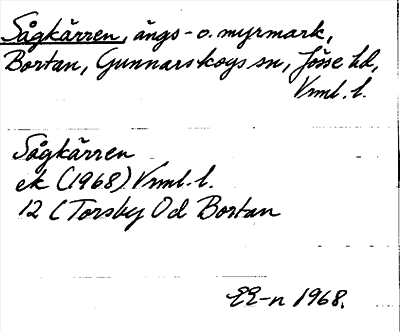 Sågkärren, ängs- o. myrmark,
Bortan, Gunnarskogs sn, Jösse hd,
Vrml. l.
Sågkärren
ek (1968) Vrml. l.
12 ( Torsby Od Bortan
EE-n 1968.